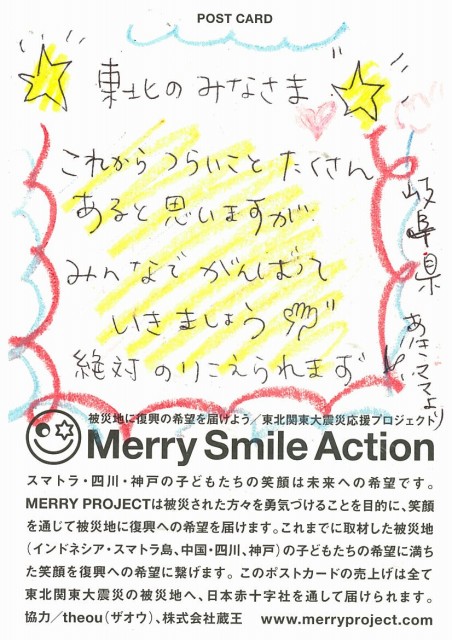 POST CARD
東北のみなさま
これから つらいこと たくさん
あると思いますが
みんなで がんばって
いきましょう
絶対のりこえられます
岐阜県 あきこママより
被災地に復興の希望を届けよう／東北関東大震災応援プロジェクト
Merry Smile Action
スマトラ・四川・神戸の子どもたちの笑顔は未来への希望です。
MERRY PROJECTは被災された方々を勇気づけることを目的に、笑顔
を通じて被災地に復興への希望を届けます。これまでに取材した被災地
（インドネシア・スマトラ島、中国・四川、神戸）の子どもたちの希望に満ち
た笑顔を復興への希望に繋げます。このポストカードの売上げは全て
東北関東大震災の被災地へ、日本赤十字社を通して届けられます。
協力／theou（ザオウ）、株式会社蔵王 www.merryproject.com